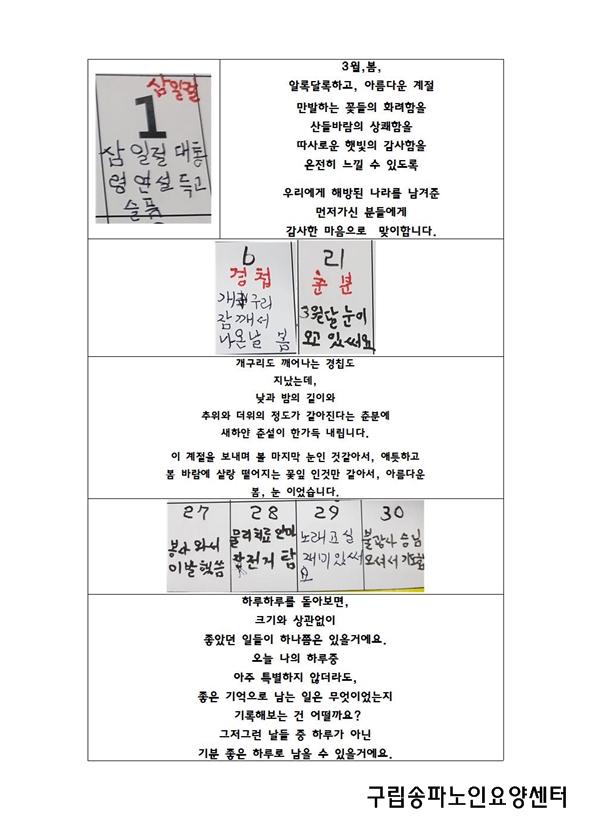 삼일절
1
삼일절 대통
령 연설 듣고
슬픔
3월,봄,
알록달록하고, 아름다운 계절
만발하는 꽃들의 화려함을
산들바람의 상쾌함을
따사로운 햇빛의 감사함을
온전히 느낄 수 있도록
우리에게 해방된 나라를 남겨준
먼저가신 분들에게
감사한 마음으로 맞이합니다.
6
경칩
개구리
잠깨서
나온날 봄
21
춘분
3월달 눈이
오고 있써요
개구리도 깨어나는 경칩도
지났는데,
낮과 밤의 길이와
추위와 더위의 정도가 같아진다는 춘분에
새하얀 춘설이 한가득 내립니다.
이 계절을 보내며 볼 마지막 눈인 것같아서, 애틋하고
봄 바람에 살랑 떨어지는 꽃잎 인것만 같아서, 아름다운
봄, 눈 이었습니다.
27
봉사 와서
이발했씀
28
물리치료 안마
자전거 탐
29
노래교실
재미있써
요
30
불광사 스님
오셔서 기도함
하루하루를 돌아보면,
크기와 상관없이
좋았던 일들이 하나쯤은 있을거에요.
오늘 나의 하루중
아주 특별하지 않더라도,
좋은 기억으로 남는 일은 무엇이었는지
기록해보는 건 어떨까요?
그저그런 날들 중 하루가 아닌
기분 좋은 하루로 남을 수 있을거에요.
구립송파노인요양센터